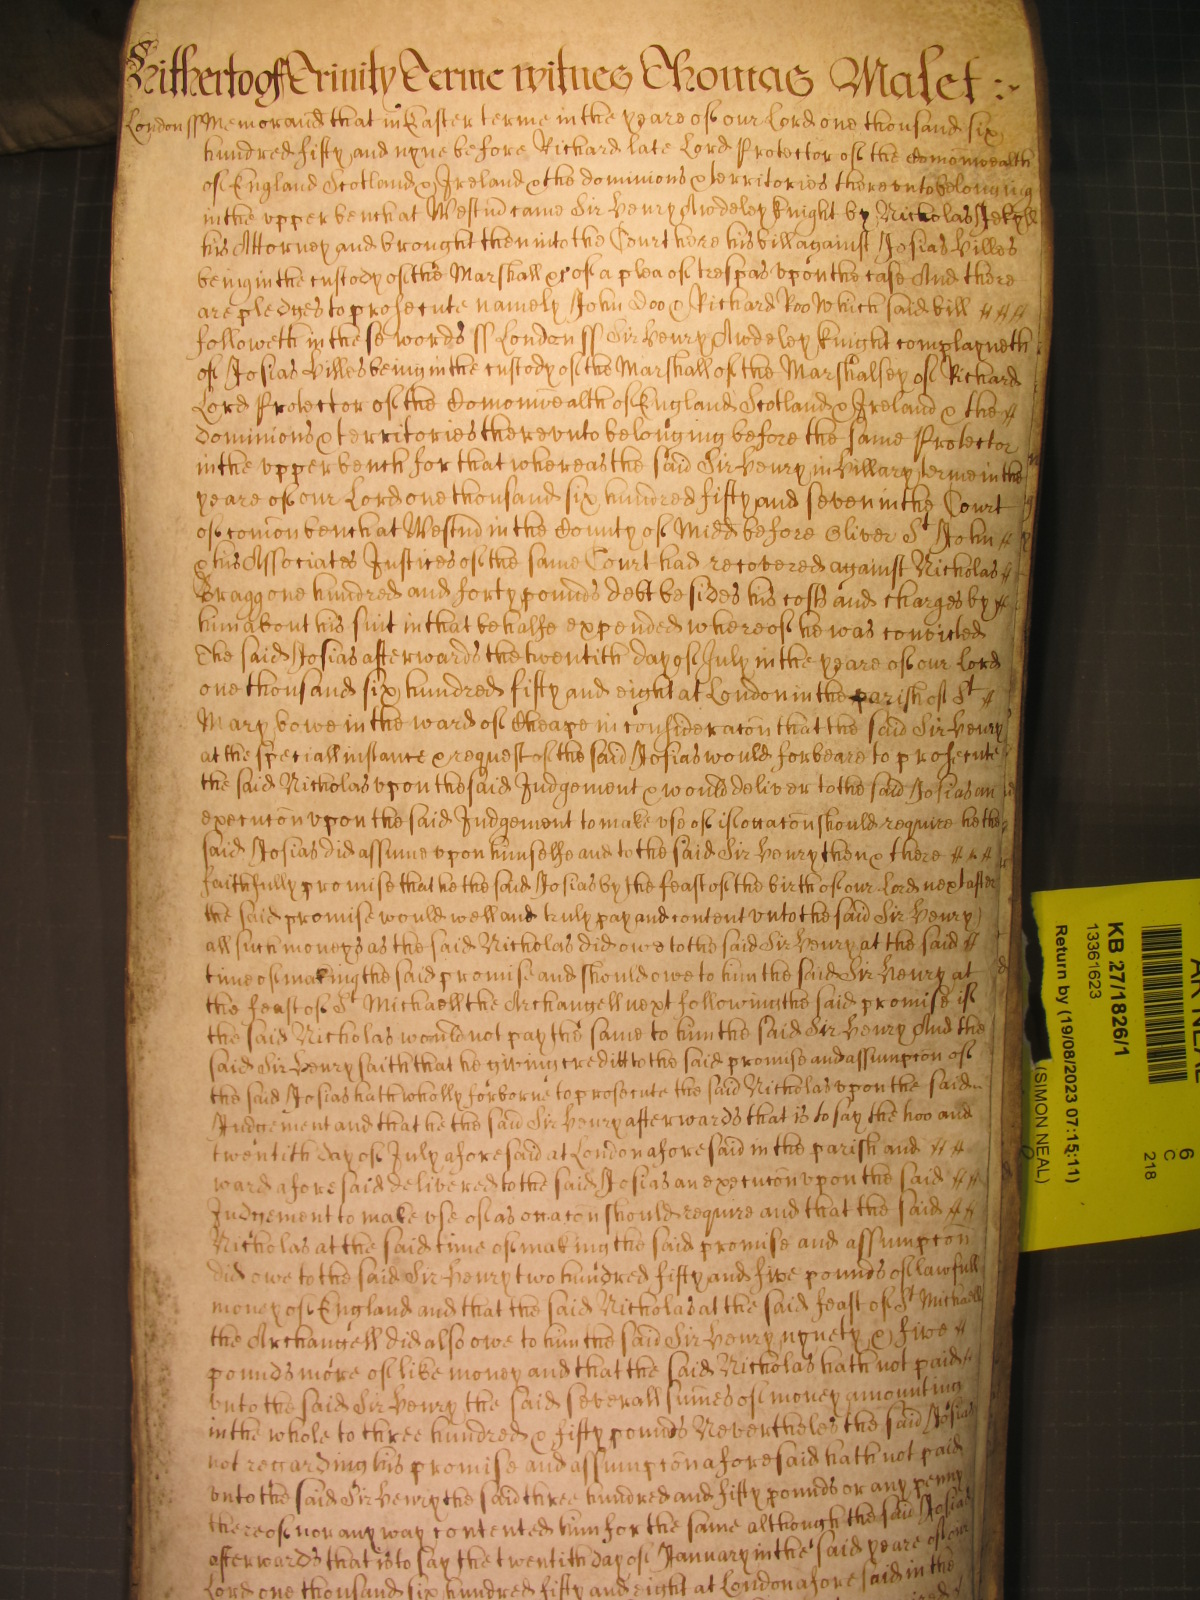 Hitherto of Trinity Terme witnes Thomas Malet :~
London ss Memorand that in Easter terme in the yeare of our Lord one thousand six
hundred fifty and nyne before Richard late Lord Protector of the Comonwealth
of England Scotland & Ireland & the dominions & territories therevnto belonging
in the vpper bench at Westm came Sir Henry Awdeley knight by Nicholas Jekyll
his Attorney and brought then into the Court here his bill against Josias Villes
being in the custody of the Marshall &c of a plea of trespas vpon the case And there
are pledges to prosecute namely John Doo & Richard Roo Which said bill
followeth in these words ss London ss Sir Henry Awdeley knight complayneth
of Josias Villes being in the custody of the Marshall of the Marshalsey of Richard
Lord Protector of the Comonwealth of England Scotland & Ireland & the
dominions & territories therevnto belonging before the same Protector
in the vpper bench for that whereas the said Sir Henry in Hillary terme in the
yeare of our Lord one thousand six hundred fifty and seven in the Court
of comon bench at Westm in the County of Midd before Oliver St John
& his Associates Justices of the same Court had recovered against Nicholas
Bragg one hundred and forty pounds debt besides his costs and charges by
him about his suit in that behalfe expended whereof he was convicted
The said Josias afterwards the twentith day of July in the yeare of our Lord
one thousand six hundred fifty and eight at London in the parish of St
Mary bowe in the ward of Cheape in consideracon that the said Sir Henry
at the speciall instance & request of the said Josias would forbeare to prosecute
the said Nicholas vpon the said Judgement & would deliver to the said Josias an
execucon vpon the said Judgement to make vse of if occacon should require he the
said Josias did assume vpon himselfe and to the said Sir Henry then & there
faithfully promise that he the said Josias by the feast of the birth of our Lord next after
the said promise would well and truly pay and content vnto the said Sir Henry
all such moneys as the said Nicholas did owe to the said Sir Henry at the said
time of making the said promise and should owe to him the said Sir Henry at
the feast of St Michaell the Archangell next following the said promise if
the said Nicholas would not pay the same to him the said Sir Henry And the
said Sir Henry saith that he giving creditt to the said promise and assumpcon of
the said Josias hath wholly forborne to prosecute the said Nicholas vpon the said
Judgement and that he the said Sir Henry afterwards that is to say the two and
twentith day of July aforesaid at London aforesaid in the parish and
ward aforesaid delivered to the said Josias an execucon vpon the said
Judgement to make vse of as occacon should require and that the said
Nicholas at the said time of making the said promise and assumpcon
did owe to the said Sir Henry two hundred fifty and five pounds of lawfull
money of England and that the said Nicholas at the said feast of St Michaell
the Archangell did also owe to him the said Sir Henry nynety & five
pounds more of like money and that the said Nicholas hath not paid
vnto the said Sir Henry the said severall sumes of money amounting
in the whole to three hundred & fifty pounds Nevertheles the said Josias
not regarding his promise and assumpcon aforesaid hath not paid
vnto the said Sir Henry the said three hundred and fifty pounds or any penny
thereof nor any way contented him for the same although the said Josias
afterwards that is to say the twentith day of January in the said yeare of our
Lord one thousand six hundred fifty and eight at London aforesaid in the
KB 27/1826/1
13361623
Return by (19/08/2023 07:15:11)
(SIMON NEAL)
6
C
218